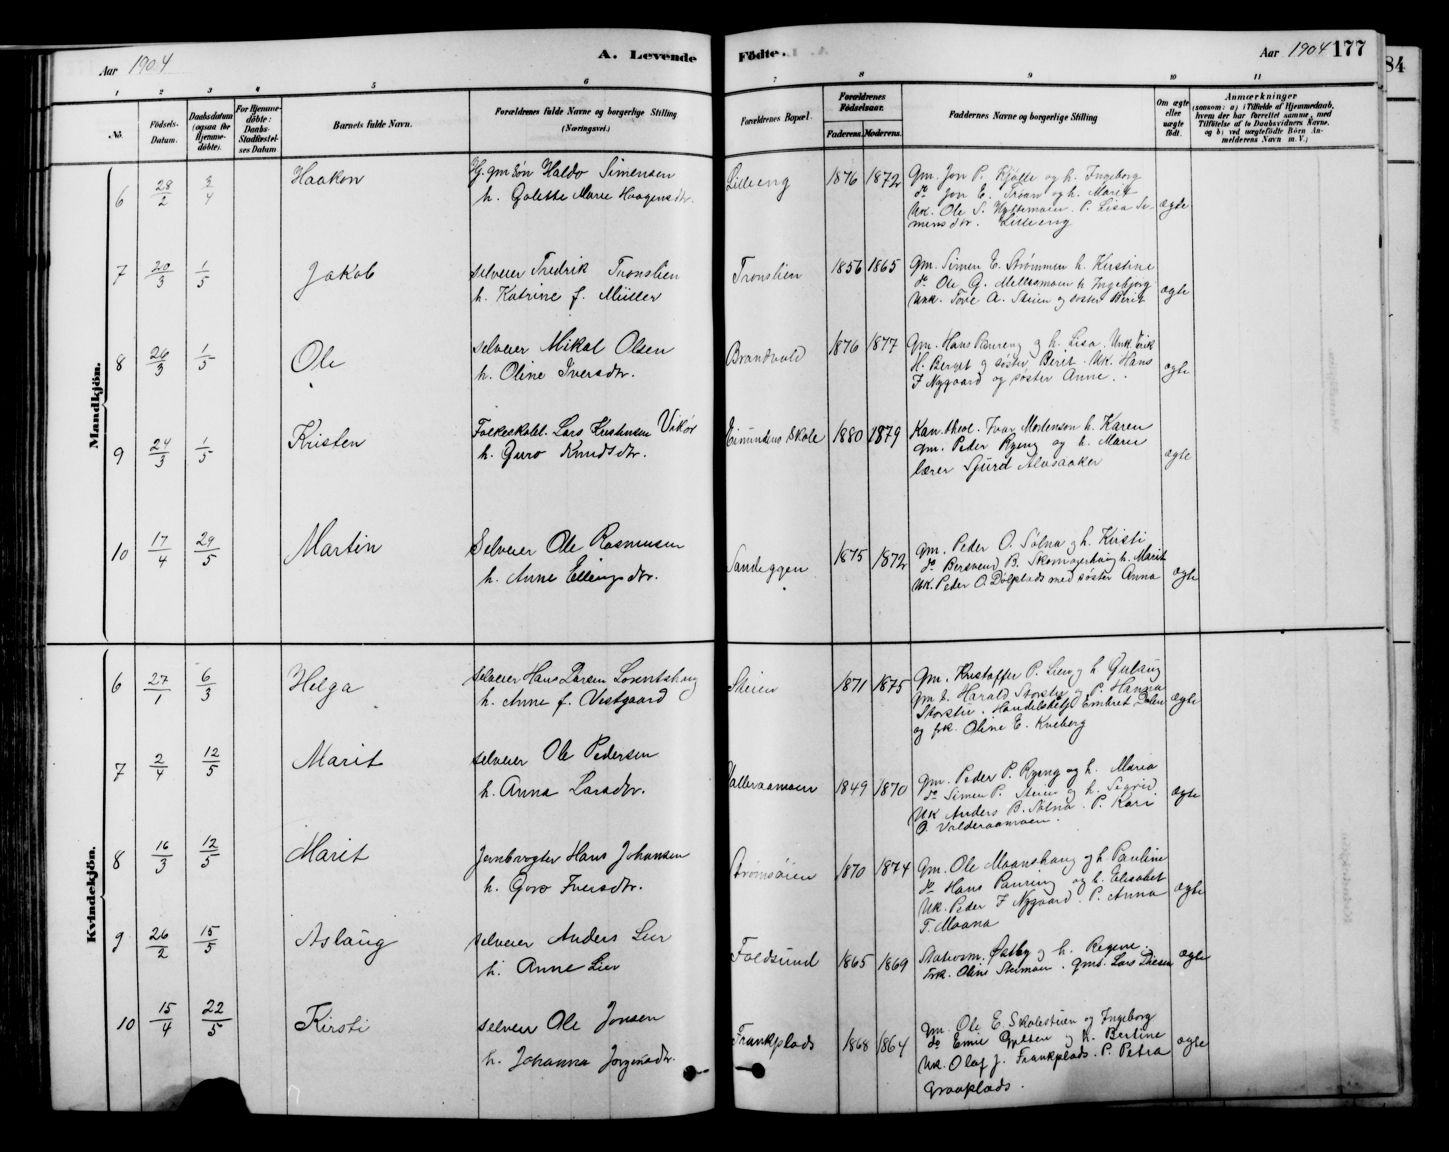 Aar 1904
A. Levende Födte.
Aar 1904 177
84
1 2 3 4 5 6 7 8 9 10 11
No.
Födsels-Datum.
Daabsdatum (ogsaa for Hjemme-döbte).
For Hjemme-döbte: Daabs-Stadfæstel-ses Datum
Barnets fulde Navn.
Forældrenes fulde Navne og borgerlige Stilling (Næringsvei.)
Forældrenes Bopæl.
Forældrenes Födselsaar.
Faderens. Moderens.
Faddernes Navne og borgerlige Stilling
Om ægte eller uægte födt.
Anmærkninger (saasom: a) i Tilfælde af Hjemmedaab, hvem der har forrettet samme, med Tilföielse af to Daabsvidners Navne, og b) ved uægtefödte Börn An-melderens Navn m. V.)
Mandkjön.
6 28/2 3/4 Haakon
Gm søn Haldo Simensen
h. Golette Marie Haagensdtr.
Lilleeng 1876 1872
Gm. Jon P. Kjølle og h. Ingeborg
do Jon E. Trøan og h. Marit
Uk. Ole S. Hyttemoen. P. Lisa Si-
mensdtr. Lilleeng
ægte
7 20/3 1/5 Jakob
selveier Fredrik Tronslien
h. Katrine f. Müller
Tronslien 1856 1865
Gm. Simen E. Strømmen h. Kirstine
do Ole G. Mellesmoen h Ingebjørg
Unk. Tove A. Steien og søster Berit
ægte
8 26/3 1/5 Ole
selveier Mikal Olsen
h. Oline Iversdtr.
Brandvold 1876 1877
Gm. Hans Paureng og h. Lisa. Unk. Erik
H. Berget og søster Berit. Uk. Hans
I Nygaard og søster Anne.
ægte
9 24/3 1/5 Kristen
Folkeskolel. Lars Kristensen Vikør
h. Guro Knudsdtr.
Eimundens Skole 1880 1879
Kan. theol. Ivar Mortenson h. Karen
gm. Peder Ryeng og h. Marie
lærer Sjurd Alvsaaker
ægte
10 17/4 29/5 Martin
Selveier Ole Rasmusen
h. Anne Ellingsdtr.
Sandeggen 1875 1872
Gm. Peder O. Sølna og h. Kirsti
do Bersvend B. Skomagerhaug h. Marit
Uk. Peder O. Dølplads med søster Anna
ægte
Kvindekjön.
6 27/1 6/3 Helga
Selveier Hans Larsen Lorentshaug
h. Anne f. Vestgaard
Steien 1871 1875
Gm. Kristoffer P. Lien og h Gulaug
Gm t. Harald Storstie og P. Hanna
Storstie. Handelsbetj Embret Dalen
og frk. Oline E. Kveberg
ægte
7 2/4 12/5 Marit
selveier Ole Pedersen
h. Anna Larsdtr.
Valleraamoen 1849 1870
Gm. Peder P. Ryeng og h. Maria
do Simen P. Steien og h. Sigrid
Uk Anders B. Sølna. P. Kari
O. Valderaamoen.
ægte
8 16/3 12/5 Marit
Jernbvogter Hans Johansen
h. Goro Iversdtr.
Strømsøien 1870 1874
Gm. Ole Moanshaug og h Pauline
do Hans Paureng og h. Elisabet
Uk. Peder I Nygaard. P. Anna
T. Moana
ægte
9 26/2 15/5 Aslaug
selveier Anders Lier
h. Anne Lier
Foldsund 1865 1869
Stationsm. Østby og h. Regine.
Frk. Oline Steimoen. Gms. Lars Diesen
ægte
10 15/4 22/5 Kirsti
selveier Ole Jonsen
h. Johanna Jørgensdtr.
Frankplads 1868 1864
Gm. Ole E. Skolestuen og Ingeborg
do Emil Gjelten og h. Bertine
Uk. Olaf J. Frankplads. P. Petra
Graaplads.
ægte